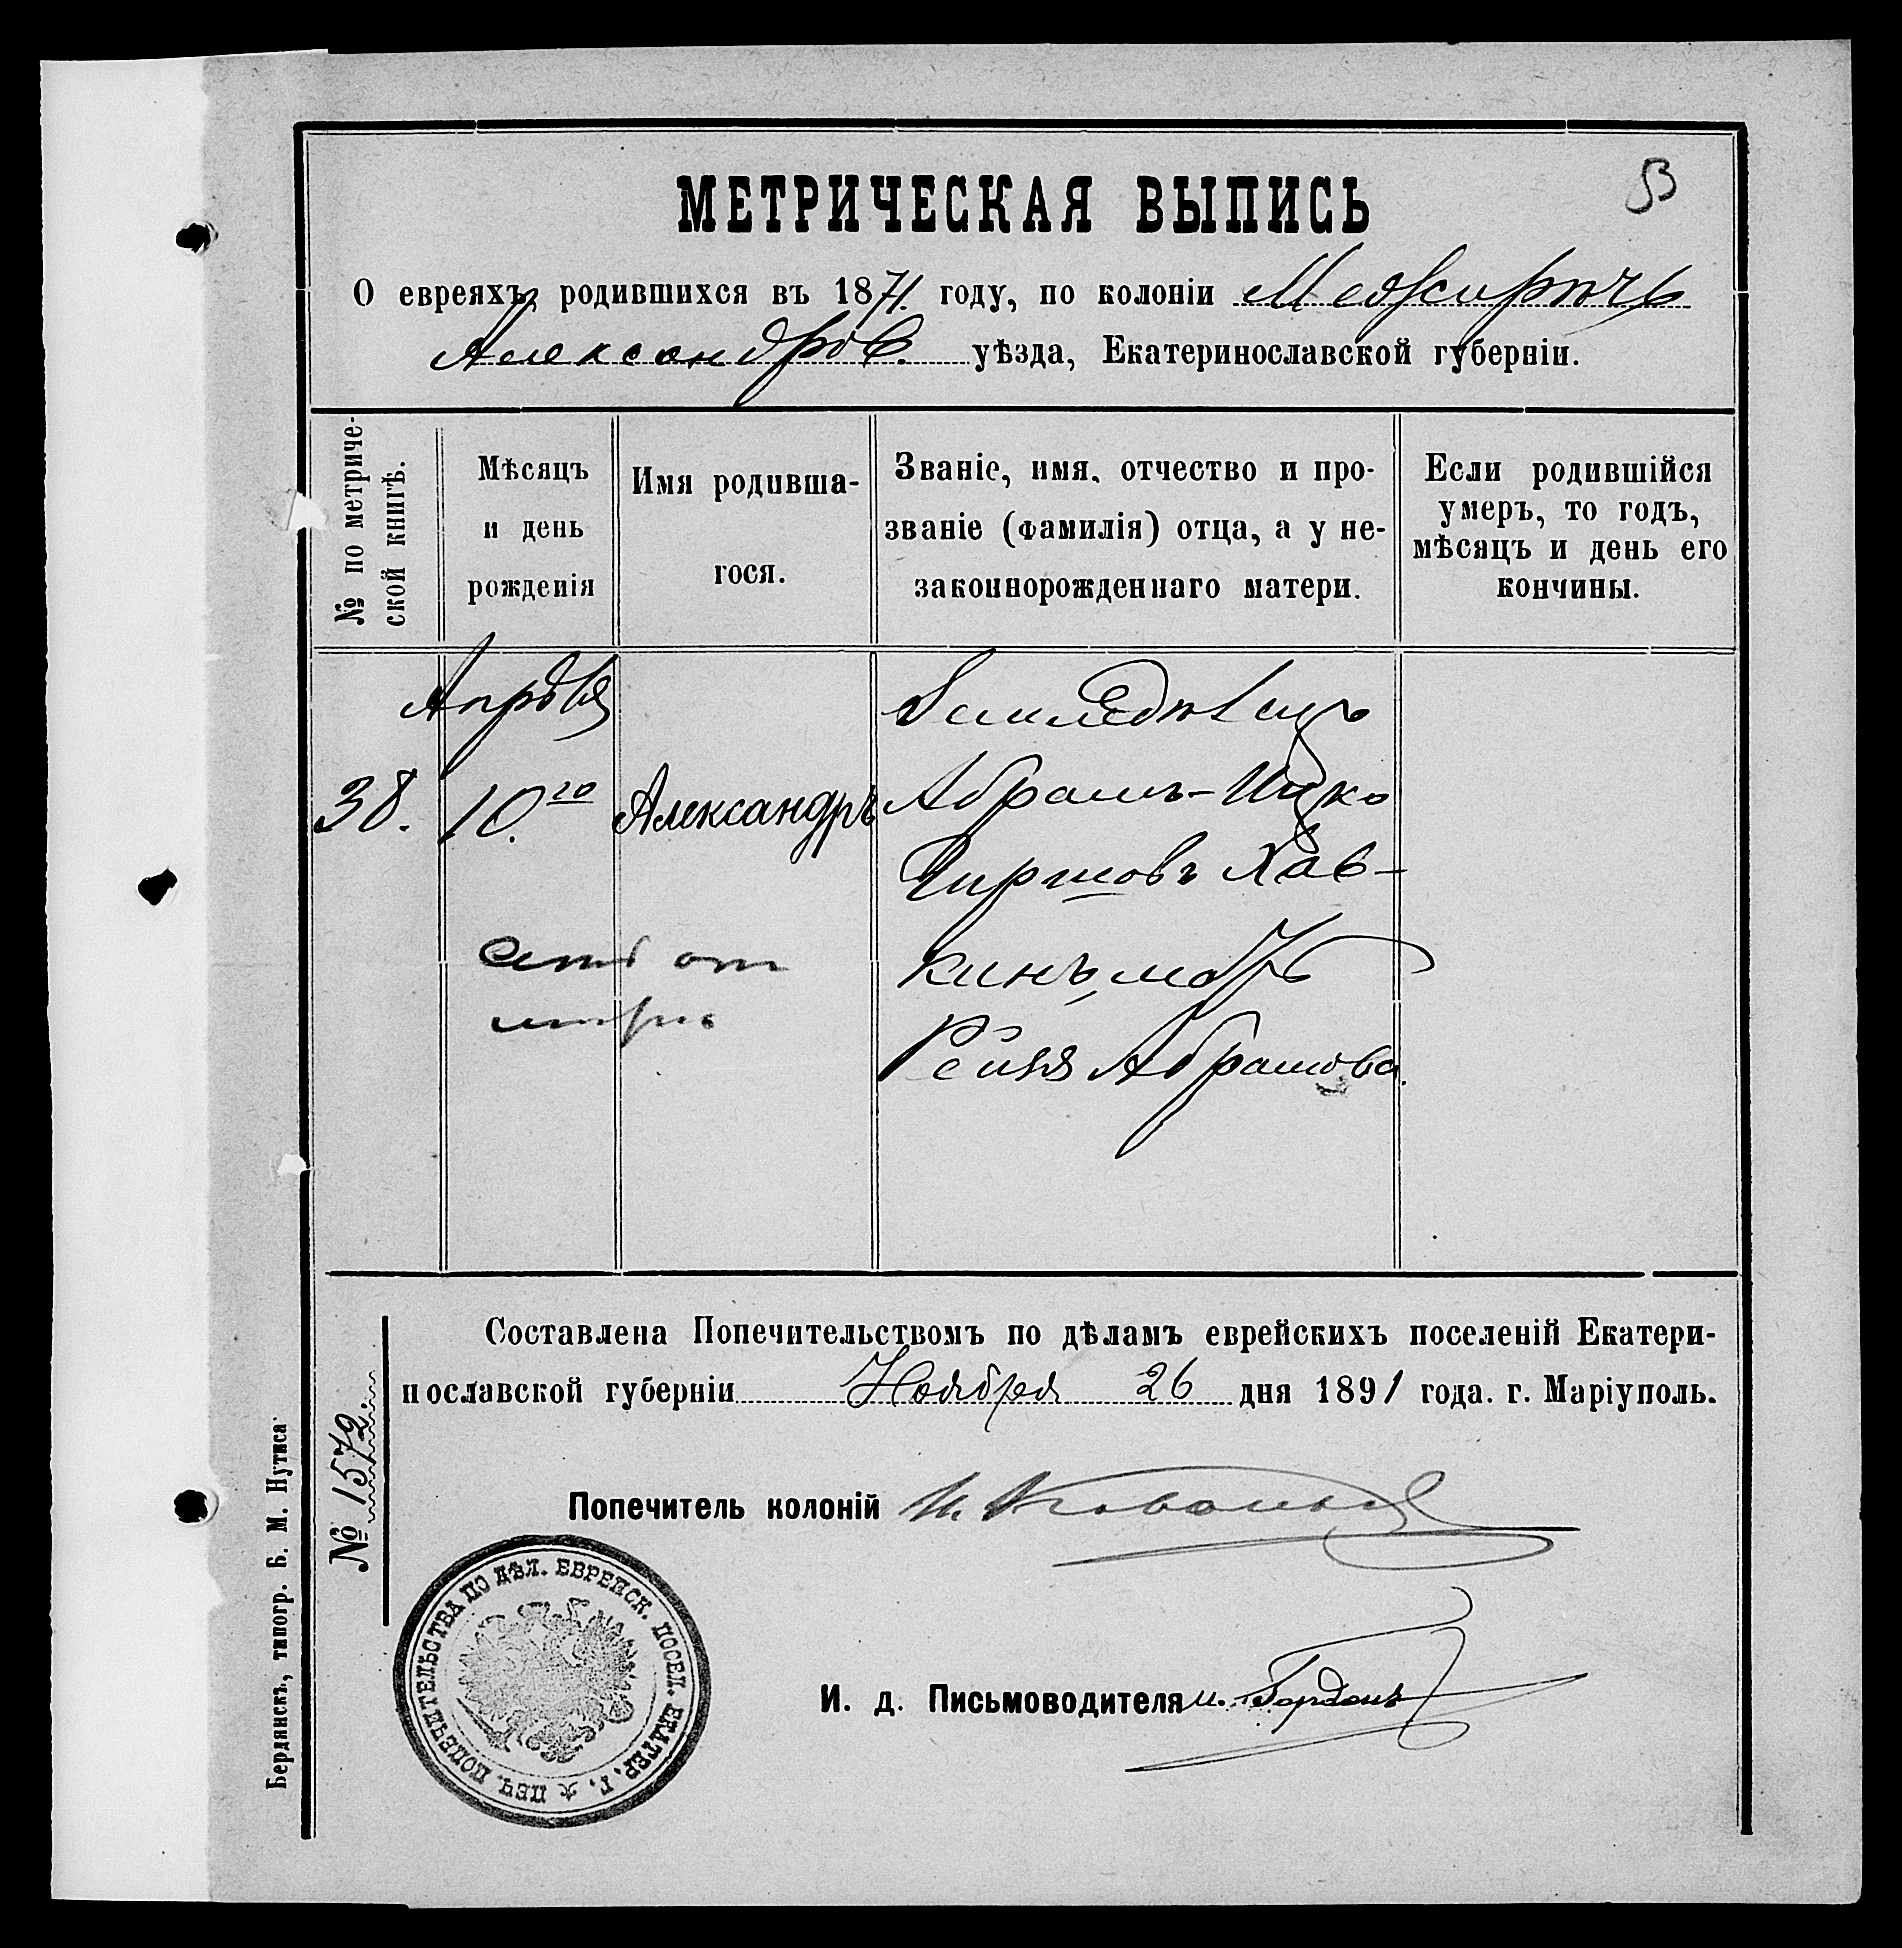 МЕТРИЧЕСКАЯ ВЫПИСЬ
О евреяхъ, родившихся въ 1871. году, по колоніи Межирѣчъ
Александров. уѣзда, Екатеринославской губерніи.
№ по метриче-
ской книгѣ.
Мѣсяцъ
и день
рожденія
Имя родивша-
гося.
Званіе, имя, отчество и про-
званіе (фамилія) отца, а у не-
законнорожденнаго матери.
Если родившійся
умеръ, то годъ,
мѣсяцъ и день его
кончины.
38.
Апрѣля
10.го
Александръ
Земледѣлецъ
Абрамъ-Ицко
Гиршовъ Хав-
кинъ, мать
Рейзя Абрамова.
Составлена Попечительствомъ по дѣламъ еврейскихъ поселеній Екатери-
нославской губерніи Ноября 26 дня 1891 года. г. Маріуполь.
№ 1572.
Попечитель колоній
И. д. Письмоводителя И. Гордонъ
ПЕЧ. ПОПЕЧИТЕЛЬСТВА ПО ДѢЛ. ЕВРЕЙСК. ПОСЕЛ. ЕКАТЕР. Г.
Бердянскъ, типогр. Б. М. Нутиса